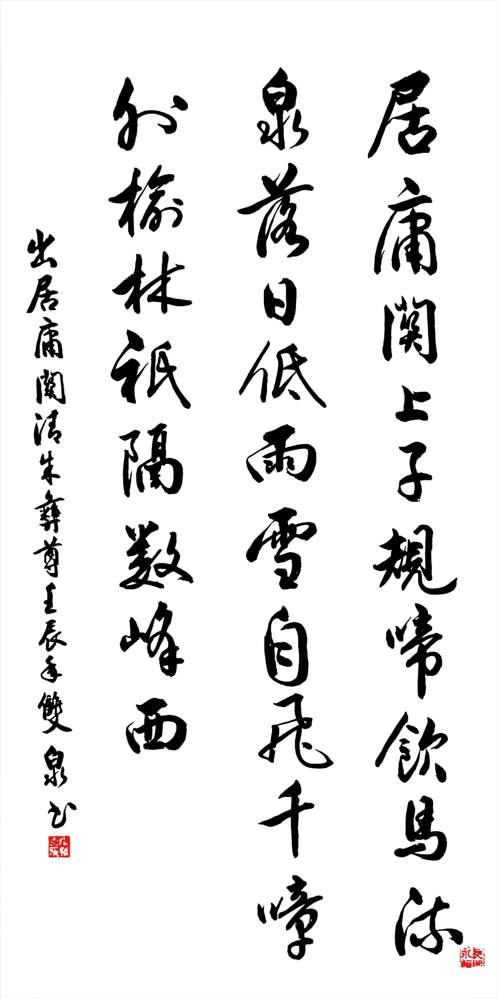 居庸關上子規啼飲馬流
泉落日低雨雪自飛千嶂
外榆林祗隔數峰西
出居庸關清朱彝尊壬辰年雙泉書